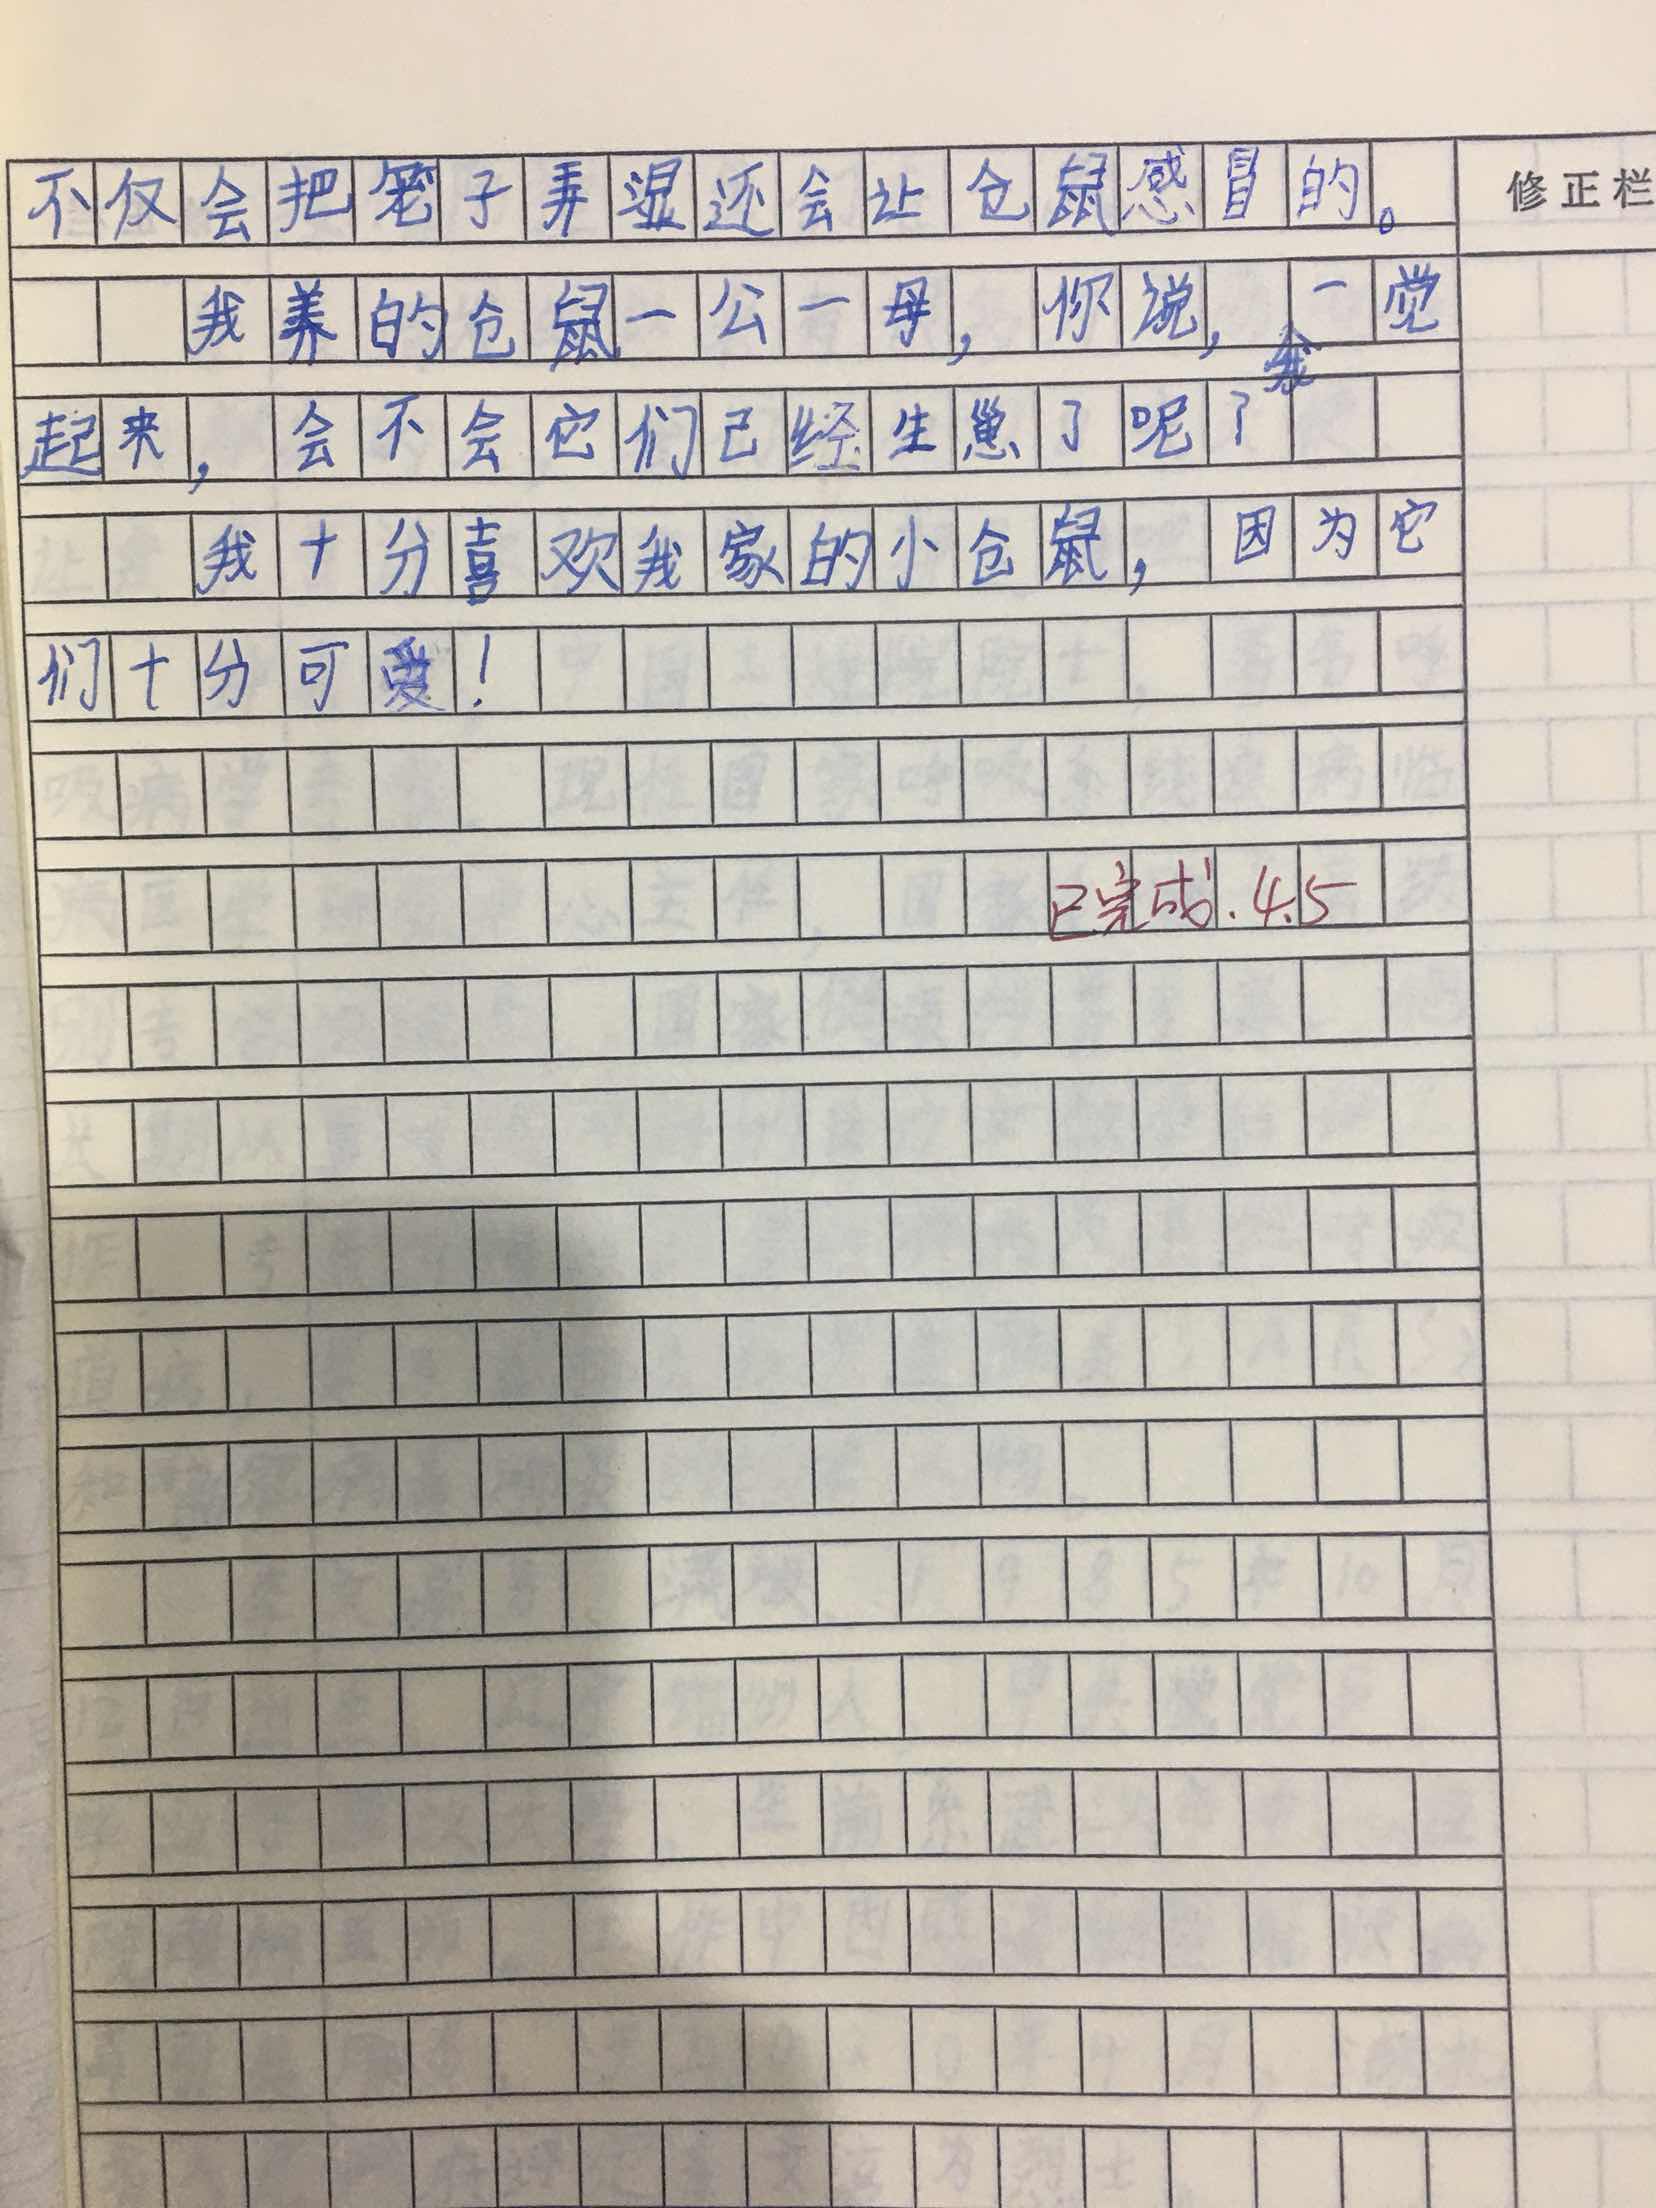 不仅会把笼子弄湿还会让仓鼠感冒的。
修正栏
我养的仓鼠一公一母，你说，我一觉
起来，会不会它们已经生崽了呢？
我十分喜欢我家的小仓鼠，因为它
们十分可爱！
已完成.4.5